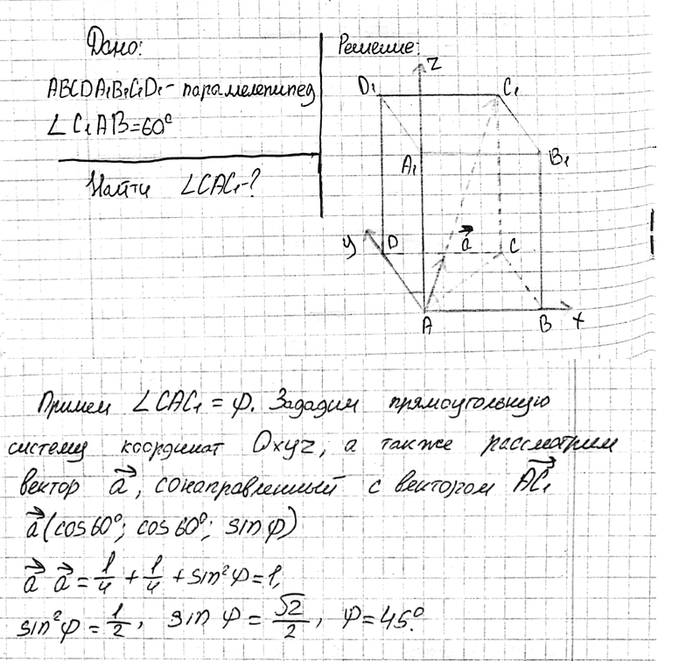 Дано:
ABCDA₁B₁C₁D₁ - параллелепипед
∠C₁AB=60°
Найти ∠CAC₁-?
Решение:
z
D₁
C₁
A₁
B₁
y
D
a⃗
C
A
B
x
Примем ∠CAC₁ = φ. Зададим прямоугольную
систему координат Oxyz, а также рассмотрим
вектор a⃗, сонаправленный с вектором AC₁⃗
a⃗(cos60°; cos60°; sinφ)
a⃗ a⃗ = 1/4 + 1/4 + sin²φ = 1,
sin²φ = 1/2, sin φ = √2/2, φ = 45°.